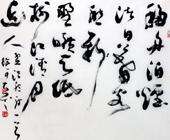 移舟泊煙
渚日暮客
愁新
野曠天低
樹江清月
近人